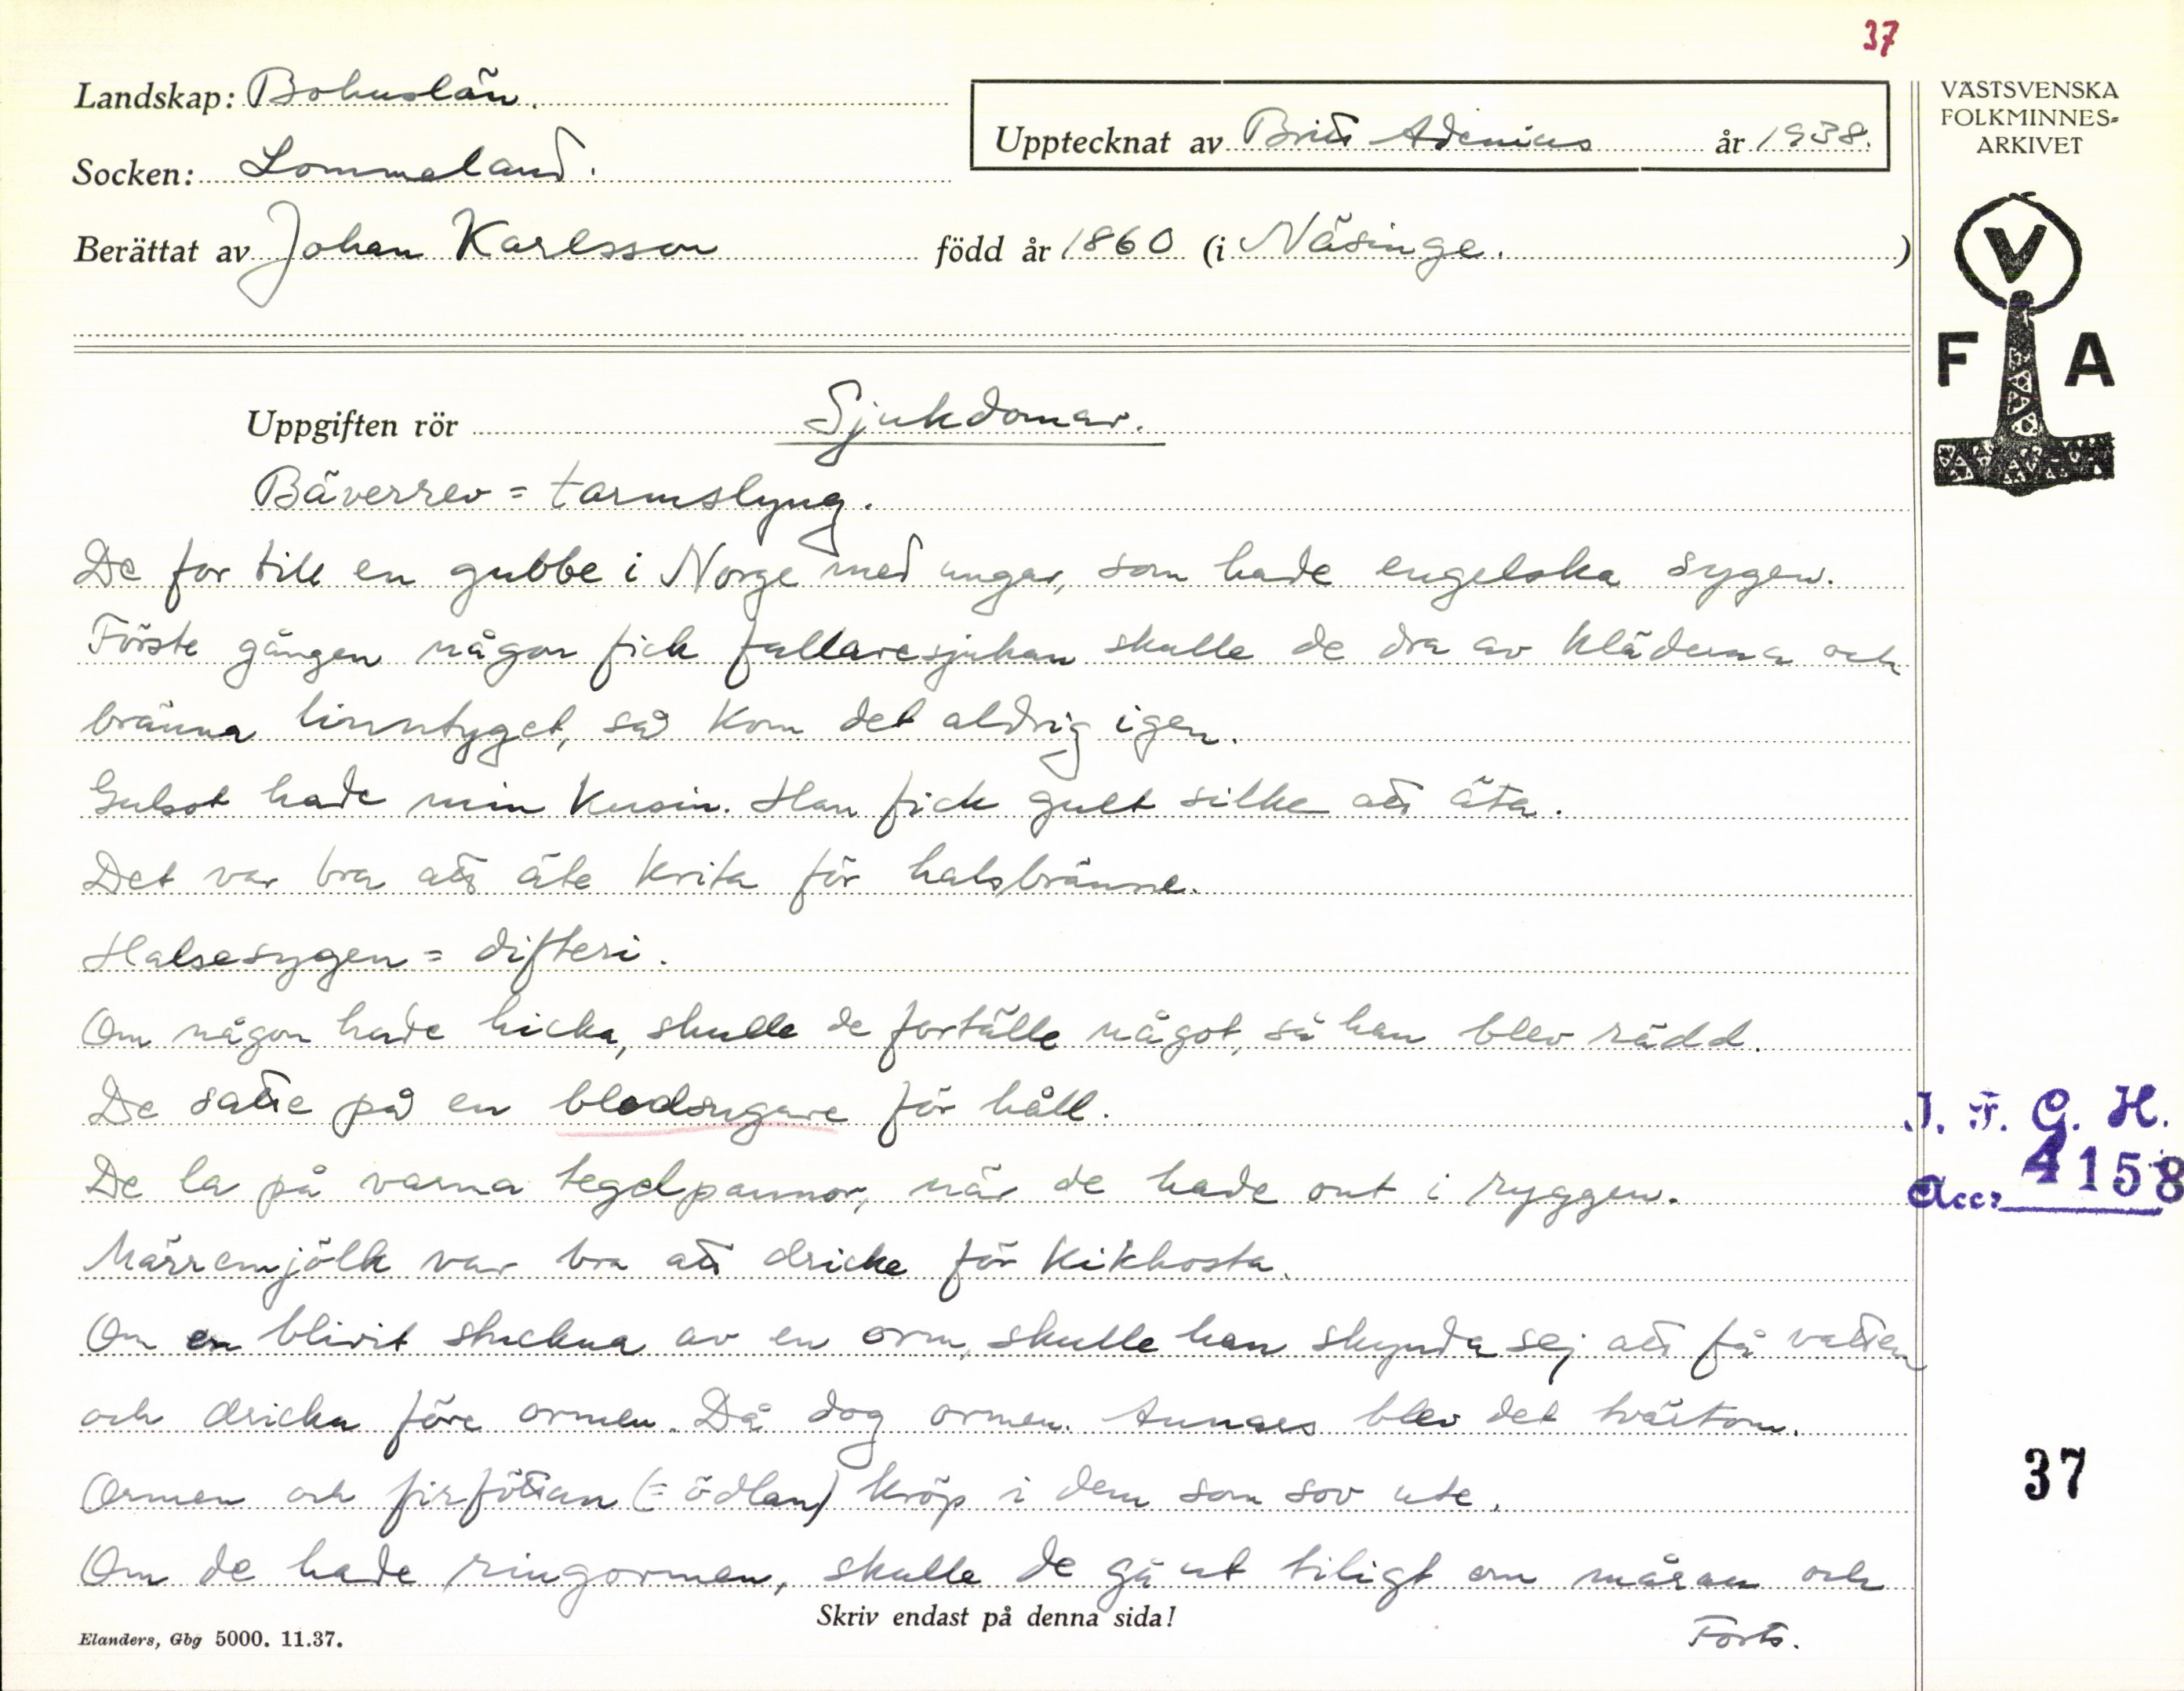 37
Landskap: Bohuslän.
VÄSTSVENSKA
FOLKMINNES-
ARKIVET
Upptecknat av Britt Adenius år 1938.
Socken: Lommeland.
Berättat av Johan Karlsson född år 1860 (i Näsinge.)
V
F A
Uppgiften rör Sjukdomar.
Bäverrev = tarmslyng.
De for till en gubbe i Norge med ungar, som hade engelska sygen.
Förste gången någon fick fallaresjukan skulle de dra av kläderna och
bränna linntyget, så kom det aldrig igen.
Gulsot hade min kusin. Han fick gult silke att äta.
Det var bra att äte krita för halsbränne.
Halsesygen = difteri.
Om någon hade hicka, skulle de fortälle något, så han blev rädd.
De satte på en blodsugare för håll.
J. F. G. H.
De la på varma tegelpannor, när de hade ont i ryggen.
Acc. 4158
Märremjölk var bra att dricke för kikhosta.
Om en blivit stuckna av en orm, skulle han skynda sej att få vatten
och dricka före ormen. Då dog ormen. Annars blev det tvärtom.
37
Ormen och firföttan (= ödlan) kröp i dem som sov ute.
Om de hade ringormen, skulle de gå ut tiligt om måran och
Skriv endast på denna sida!
Forts.
Elanders, Gbg 5000. 11.37.